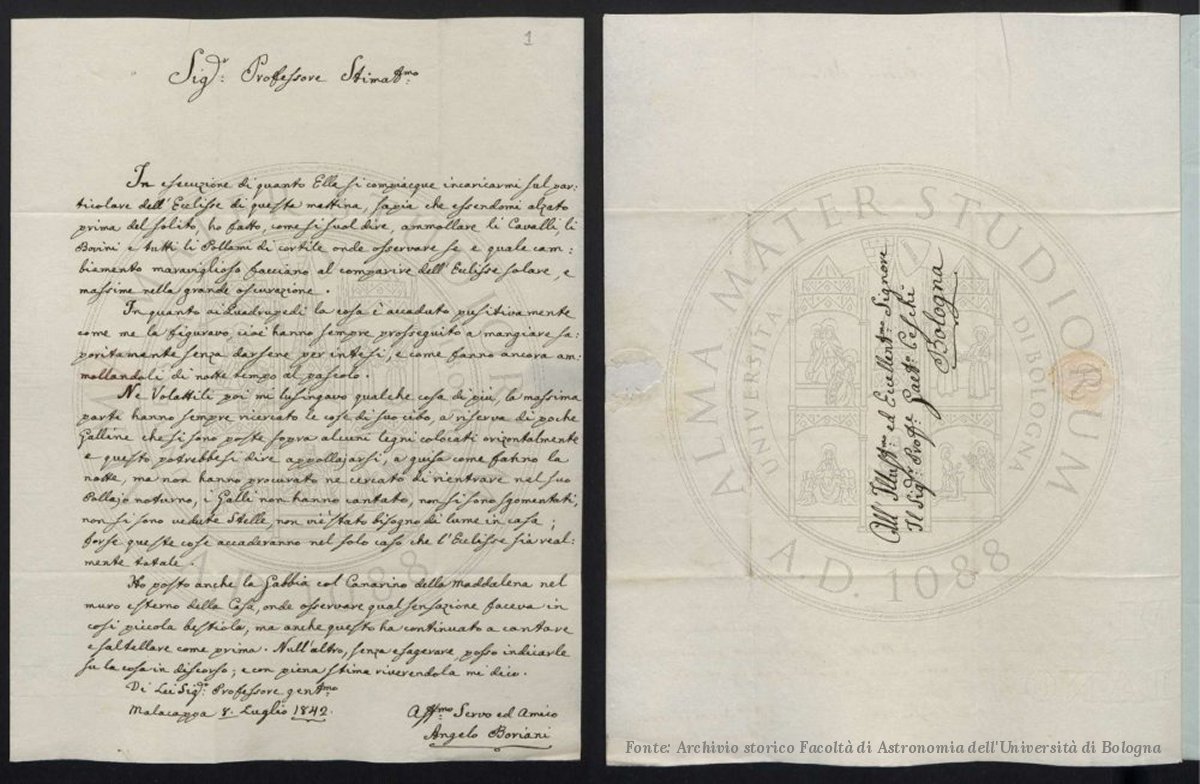 1
Sig.r Professore Stimat.mo
In esecuzione di quanto Ella si compiacque incaricarmi sul par:
ticolare dell'Ecclisse di questa mattina, sapia che essendomi alzato
prima del solito, ho fatto, come si suol dire, ammollare li Cavalli, li
Bovini e tutti li Pollami di cortile onde osservare se e quale cam:
biamento maraviglioso facciano al comparire dell'Eclisse solare, e
massime nella grande oscurazione.
In quanto ai Quadrupedi la cosa è accaduto positivamente
come me la figuravo, cioè hanno sempre prosseguito a mangiare sa:
poritamente senza darsene per intesi, e come fanno ancora am:
mollandoli di notte tempo al pascolo.
Ne Volattili poi mi lusingavo qualche cosa di più, la massima
parte hanno sempre ricercato le cose di suo cibo, a riserva di poche
Galline che si sono poste sopra alcuni legni colocati orizontalmente
e questo potrebbesi dire appollajarsi, a guisa come fanno la
notte, ma non hanno procurato ne cercato di rientrare nel suo
Pollajo notturno, i Galli non hanno cantato, non si sono sgomentati,
non si sono vedute Stelle, non vi è stato bisogno di lume in casa;
forse queste cose accaderanno nel solo caso che l'Eclisse sia real:
mente totale.
Ho posto anche la Gabbia col Canarino della Maddalena nel
muro esterno della Casa, onde osservare qual sensazione faceva in
così piccola bestiola, ma anche questo ha continuato a cantare
e saltellare come prima. Null'altro, senza esagerare, posso indicarle
su la cosa in discorso; e con piena stima riverendola mi dico.
Di Lei Sig.r Professore gent.mo
Malacappa 8. Luglio 1842.
Aff.mo Servo ed Amico
Angelo Boriani
All'Illust.mo ed Eccellent.mo Signore
Il Sig.r Prof.re Gaet.o Ceschi
Bologna
ALMA MATER STUDIORUM
UNIVERSITÀ DI BOLOGNA
A.D. 1088
Fonte: Archivio storico Facoltà di Astronomia dell'Università di Bologna